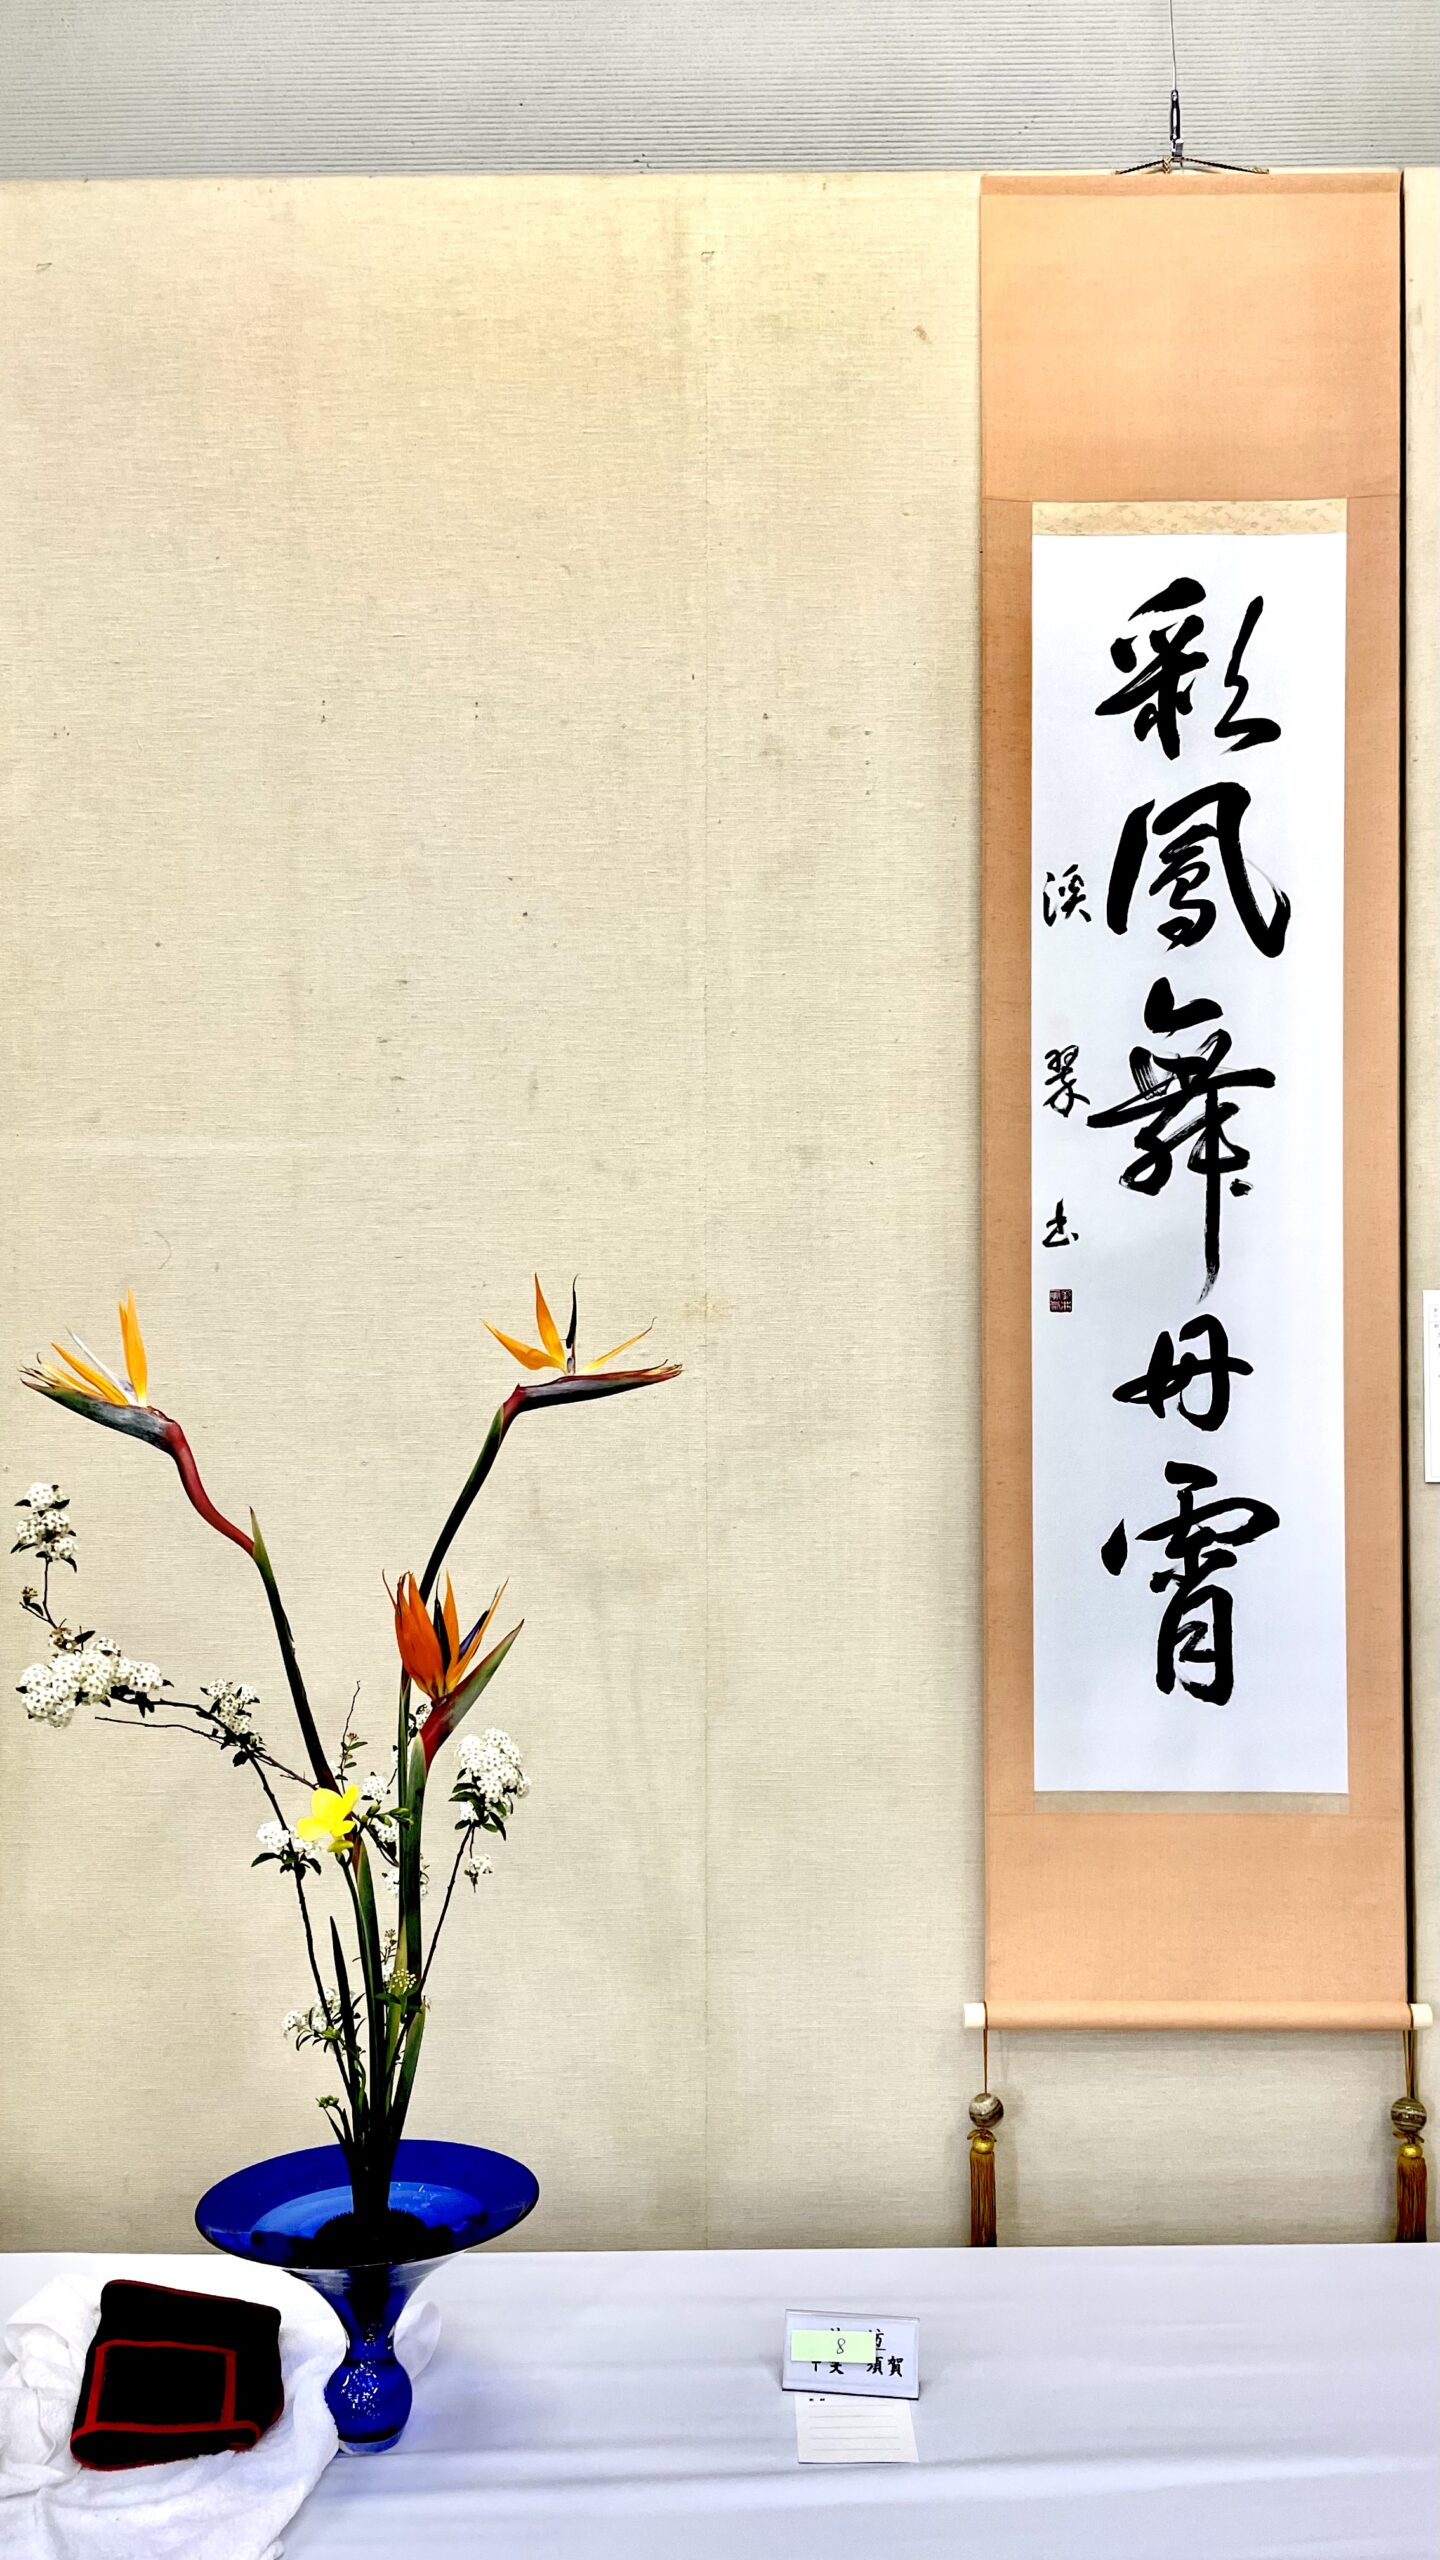 彩鳳舞丹霄
渓翠書
8
須賀